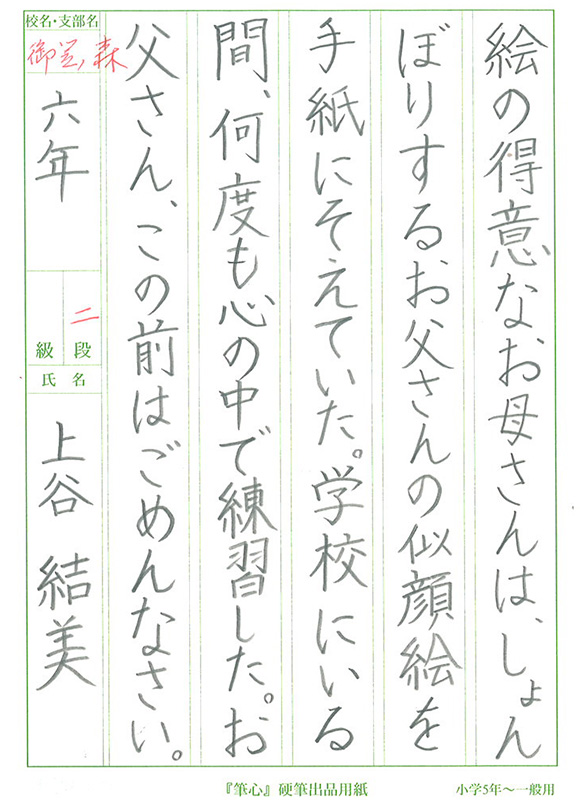 絵の得意なお母さんは、しょん
ぼりするお父さんの似顔絵を
手紙にそえていた。学校にいる
間、何度も心の中で練習した。お
父さん、この前はごめんなさい。
校名・支部名
御笠ノ森
六年
二
級 段
氏 名
上谷 結美
『筆心』硬筆出品用紙
小学5年〜一般用